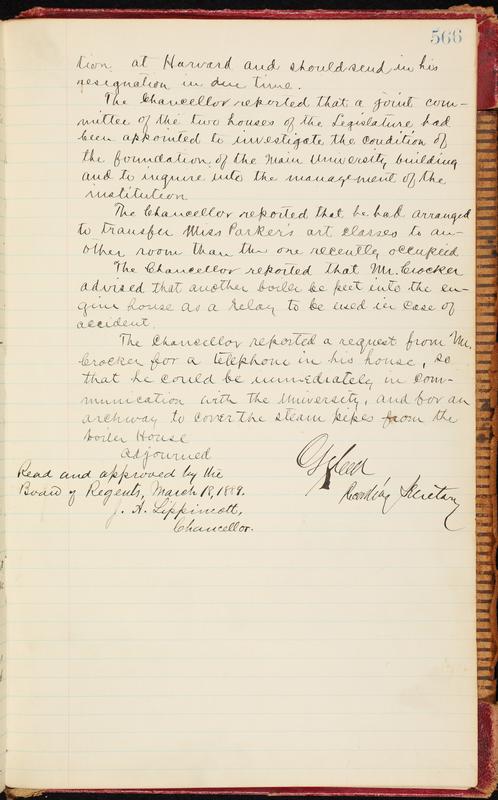 566
tion at Harvard and should send in his
resignation in due time.
The Chancellor reported that a joint com-
mittee of the two houses of the Legislature had
been appointed to investigate the condition of
the foundation of the Main University building
and to inquire into the management of the
institution
The Chancellor reported that he had arranged
to transfer Miss Parker's art classes to an-
other room than the one recently occupied
The Chancellor reported that Mr. Crocker
advised that another boiler be put into the en-
gine house as a relay to be used in case of
accident.
The Chancellor reported a request from Mr.
Crocker for a telephone in his house, so
that he could be immediately in com-
munication with the University, and for an
archway to cover the steam pipes from the
Boiler House
Adjourned
Read and approved by the
Board of Regents, March 18, 1889.
Recording Secretary
J. A. Lippincott,
Chancellor.